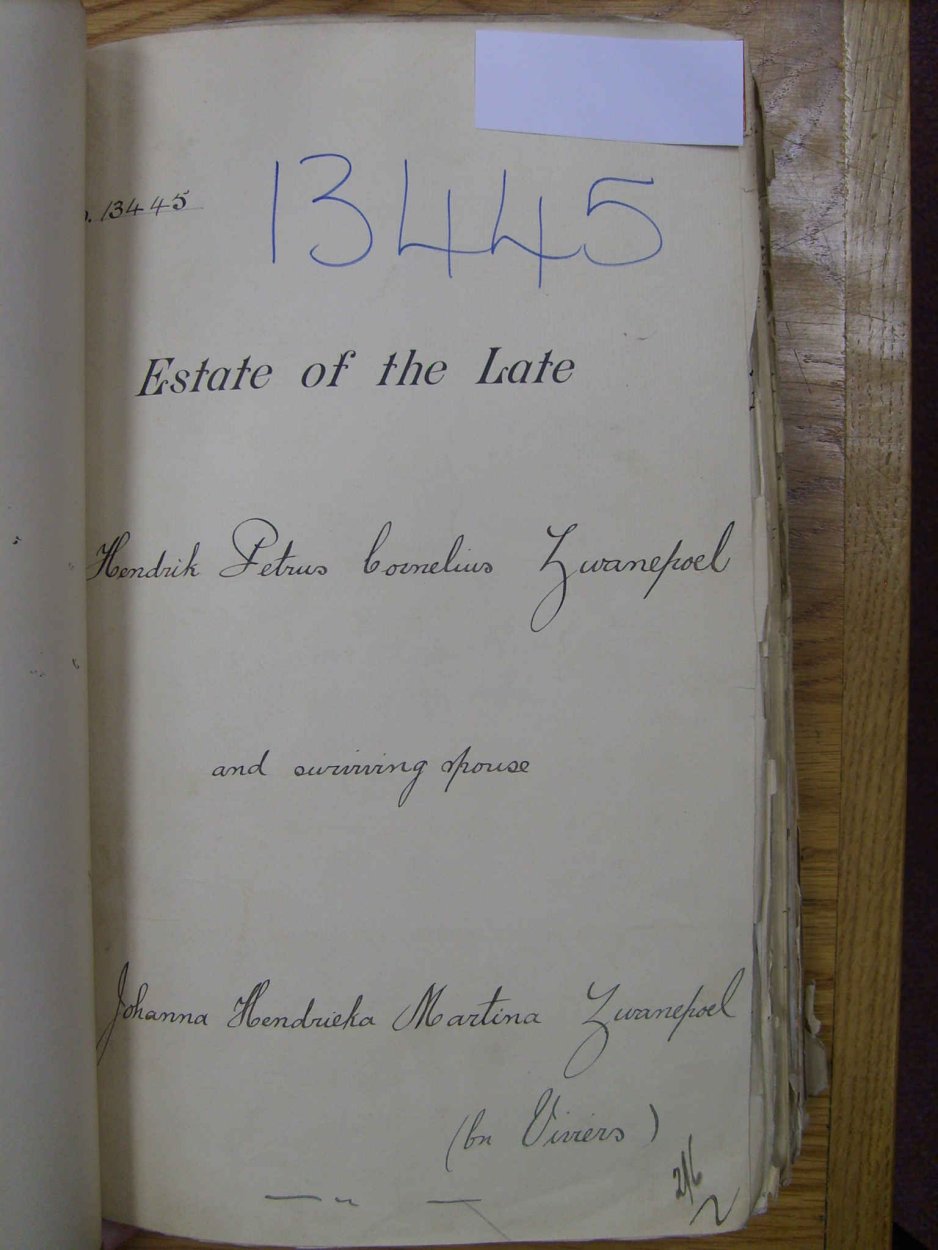 13445
. 13445
Estate of the Late
Hendrik Petrus Cornelius Zwanepoel
and surviving spouse
Johanna Hendrieka Martina Zwanepoel
(bn Viviers)
2/6